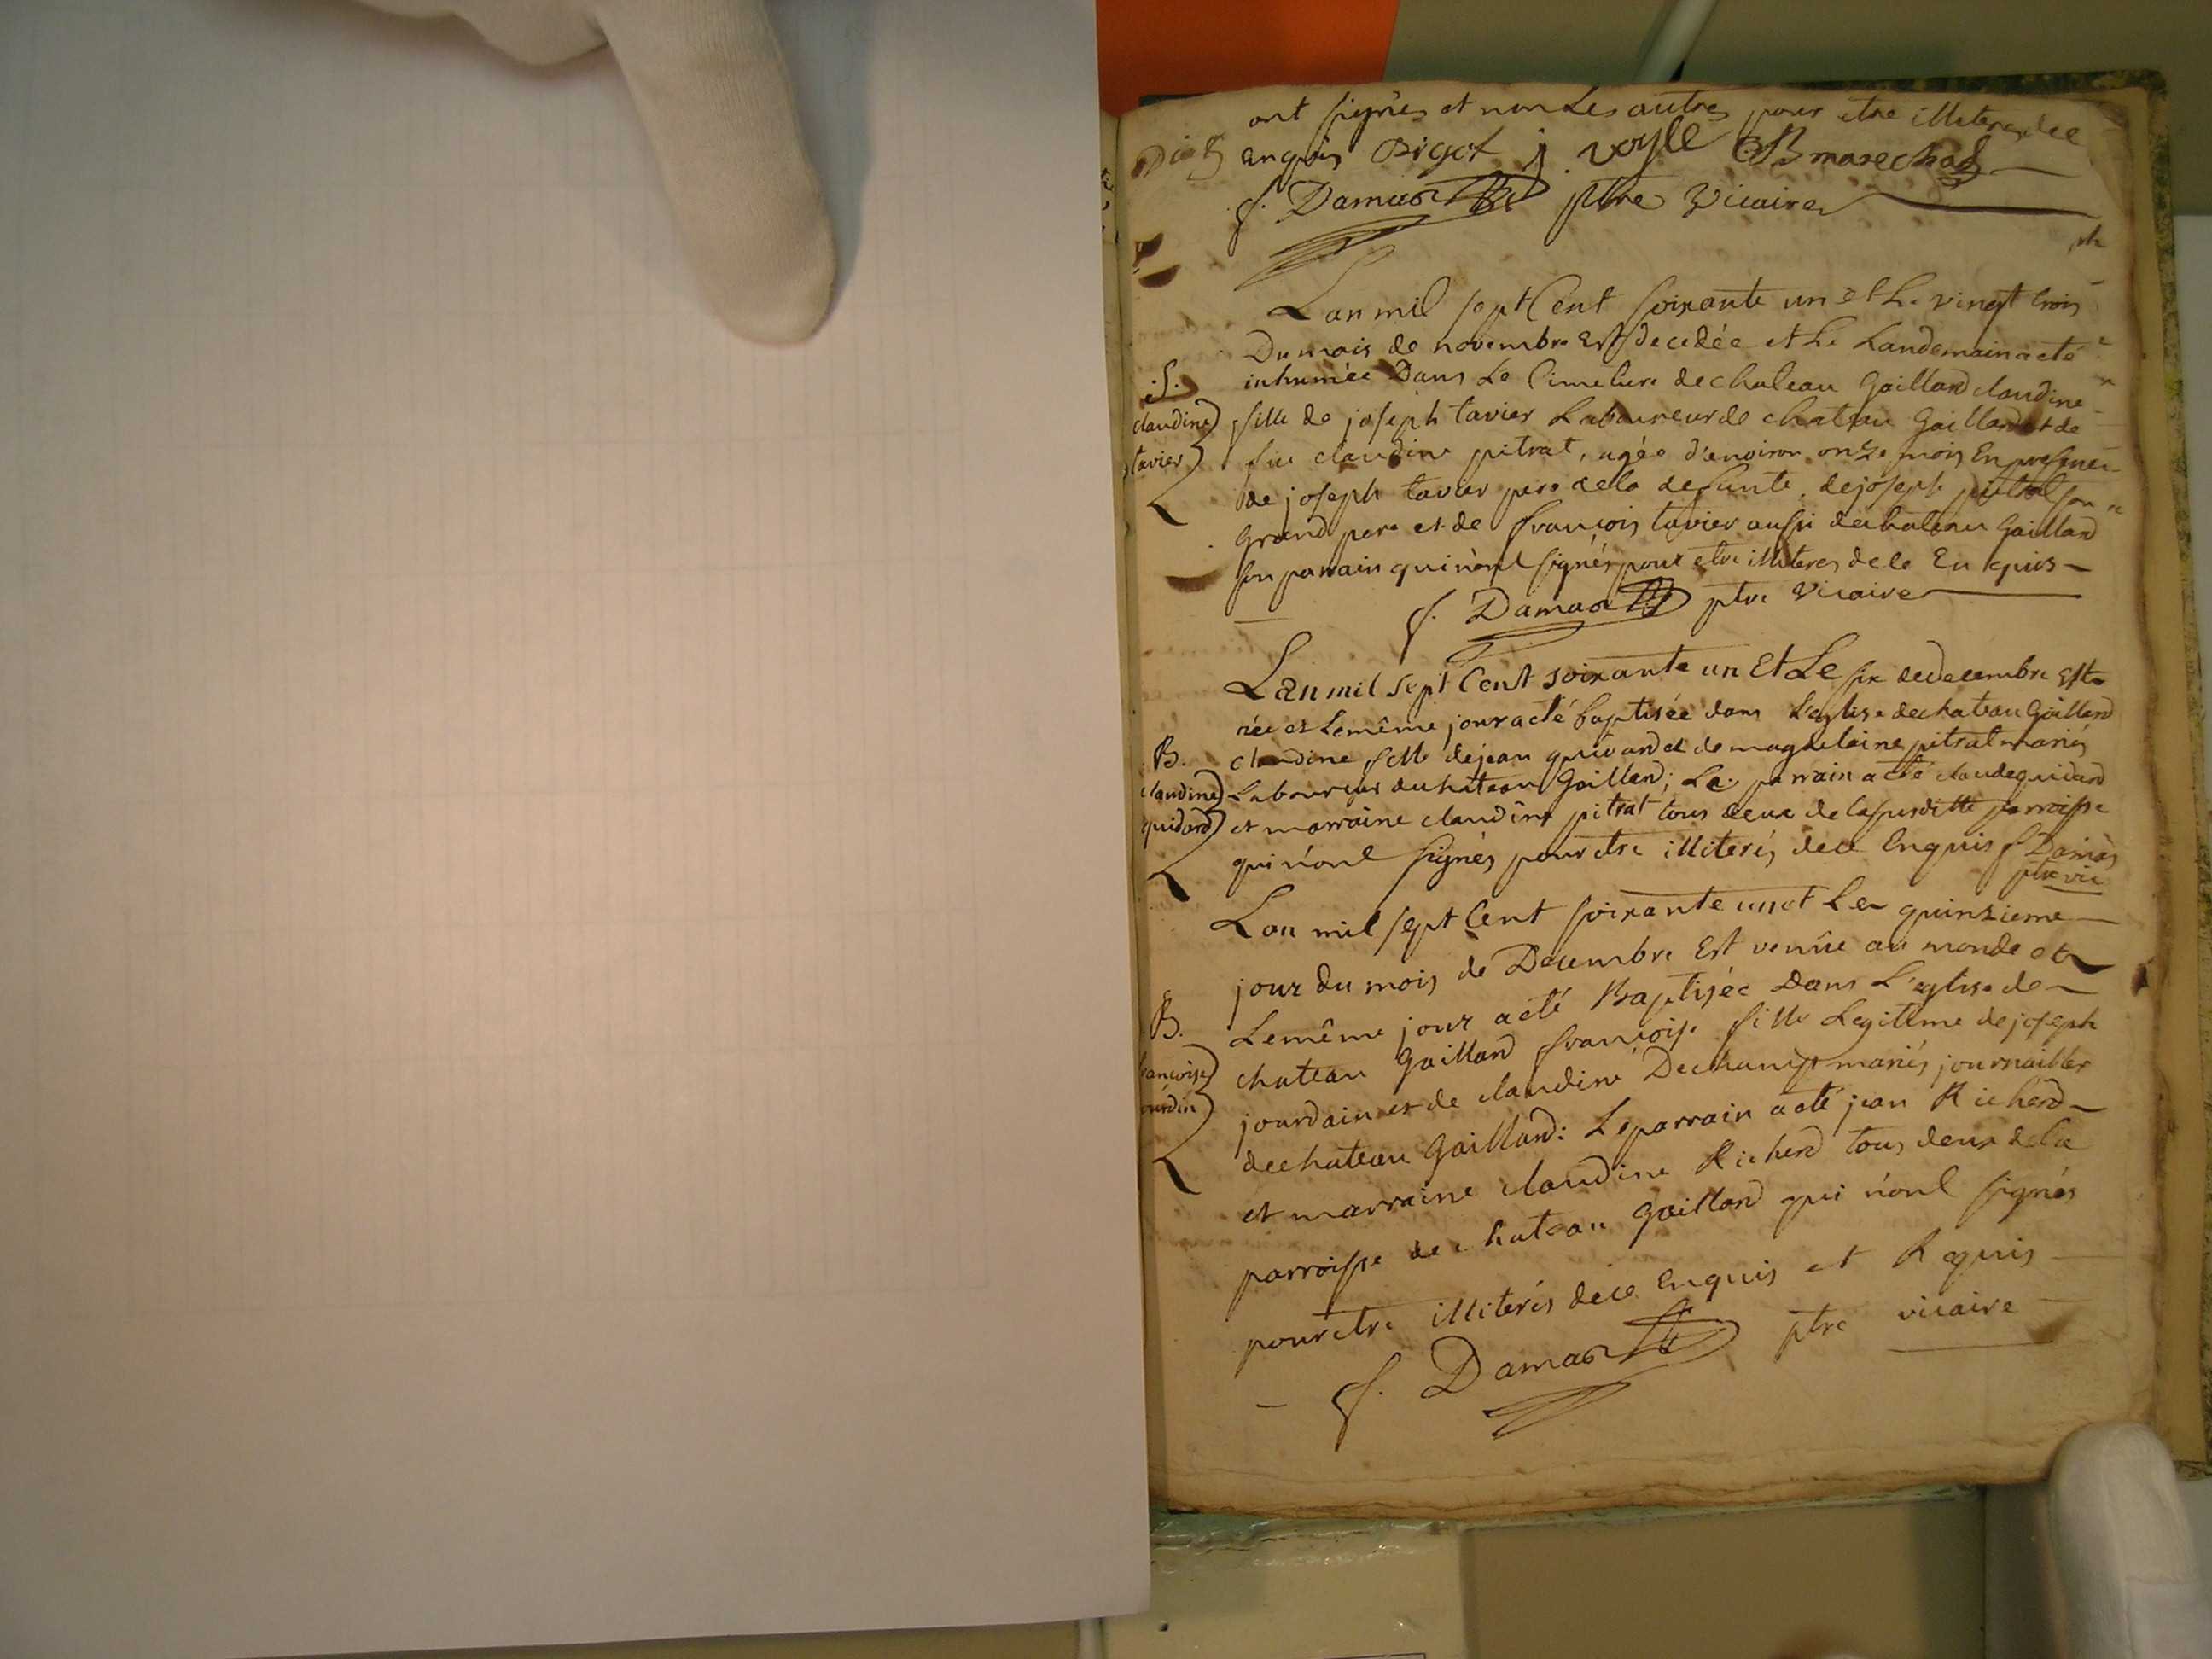 ont signés et non Les autres pour etre illiteres dece
enquis Bigot j voyle B marechal
f. Damas ptre Vicaire
Lan mil sept Cent soixante un et Le vingt trois
Du mois de novembre Est decedée et Le Landemain a eté
inhumée Dans Le Cimetiere dechateau Gaillard claudine
.S.
claudine
tavier
fille de joseph tavier Laboureur de chateau Gaillard et de
feu claudine pitrat, agée d'environ onze mois En presence
de joseph tavier pere dela defunte, dejoseph pitrat son
grand pere et de françois tavier aussi dechateau Gaillard
son parrain qui n'ont signés pour etre illiteres dece Enquis
f. Damas ptre Vicaire
Lan mil sept Cent soixante un Et Le six dedecembre Est
née et Lemême jour a eté baptisée dans L'eglise dechateau Gaillard
B.
claudine
quidard
claudine fille dejean quidard et de magdelaine pitrat mariés
Laboureur duchateau Gaillard; Le parrain a eté claude quidard
et marraine claudine pitrat tous deux de lasusditte parroisse
qui n'ont signés pour etre illiterés dece Enquis f Damas
ptre vic
Lan mil sept Cent soixante un et Le quinzieme
jour du mois de Decembre Est venüe au monde et
Lemême jour a eté Baptisée Dans L'eglise de
B.
francoise
jourdin
chateau Gaillard françoise fille Legitime dejoseph
jourdain et de claudine Dechamp mariés journaillier
dechateau Gaillard: Leparrain a eté jean Richerd
et marraine claudine Richerd tous deux dela
parroisse de chateau Gaillard qui n'ont signés
pour etre illiterés dece Enquis et Requis
f. Damas ptre vicaire